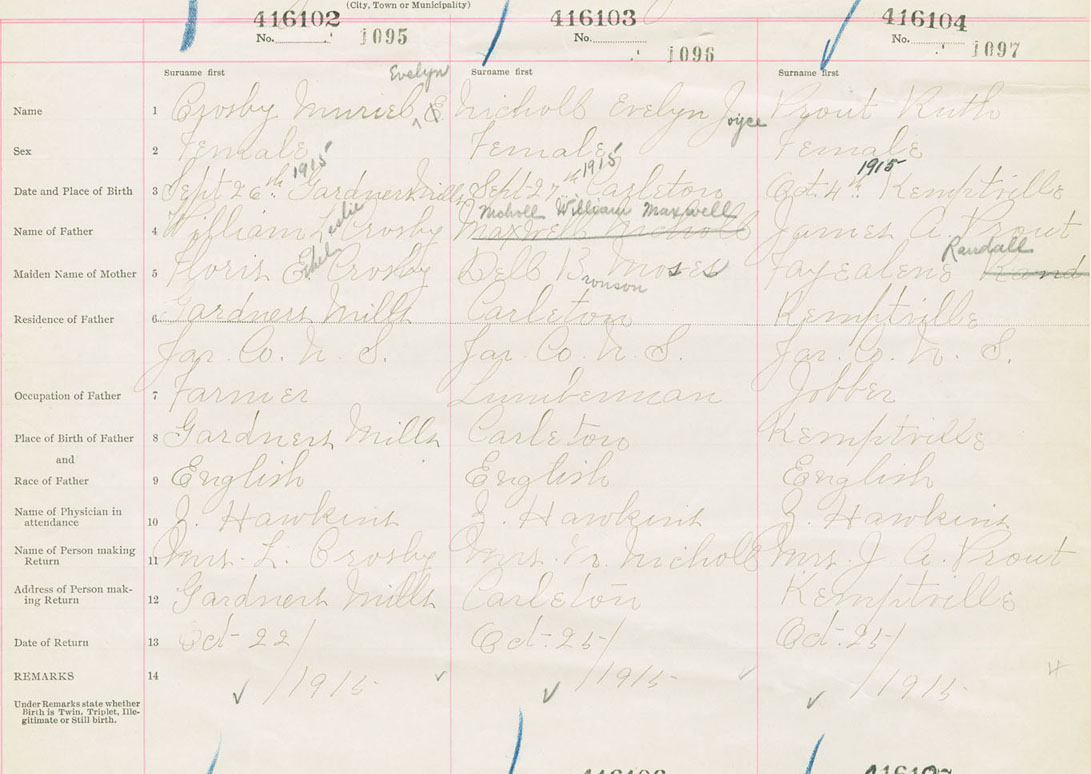 (City, Town or Municipality)
416102 416103 416104
No. 1095 No. 1096 No. 1097
Surname first Surname first Surname first
Evelyn
Name 1 Crosby Muriel ^ E Nicholl Evelyn Joyce Prout Ruth
Sex 2 Female Female Female
1915 1915 1915
Date and Place of Birth 3 Sept 26th Gardners Mills Sept 27th Carleton Oct. 4th Kemptville
Nicholl William Maxwell
Name of Father 4 William Leslie Crosby Maxwell Nicholl James A. Prout
Randall
Maiden Name of Mother 5 Floris Ethel Crosby Dell Bronson Moses Fayealene Rand
Residence of Father 6 Gardners Mills Carleton Kemptville
Yar. Co. N. S. Yar. Co. N. S. Yar. Co. N. S.
Occupation of Father 7 Farmer Lumberman Jobber
Place of Birth of Father 8 Gardners Mills Carleton Kemptville
and
Race of Father 9 English English English
Name of Physician in
attendance 10 Z. Hawkins Z. Hawkins Z. Hawkins
Name of Person making
Return 11 Mrs. L. Crosby Mrs. M. Nicholl Mrs. J. A. Prout
Address of Person mak-
ing Return 12 Gardners Mills Carleton Kemptville
Date of Return 13 Oct-22/ Oct-25/ Oct-25/
REMARKS 14 /1915 /1915 /1915
Under Remarks state whether
Birth is Twin, Triplet, Ille-
gitimate or Still birth.